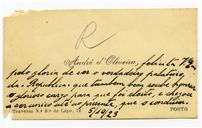 R
André d'Oliveira, felicita V. Ex.ª
pela gloria de ser o verdadeiro paladino
da República, que tambem, bem soube honrar
o glorioso cargo para que foi eleito, e chegou
a ser unico até ao presente, que o conduziu.
Travessa N.ª S.ª da Lapa, 12 PORTO
5/10/23